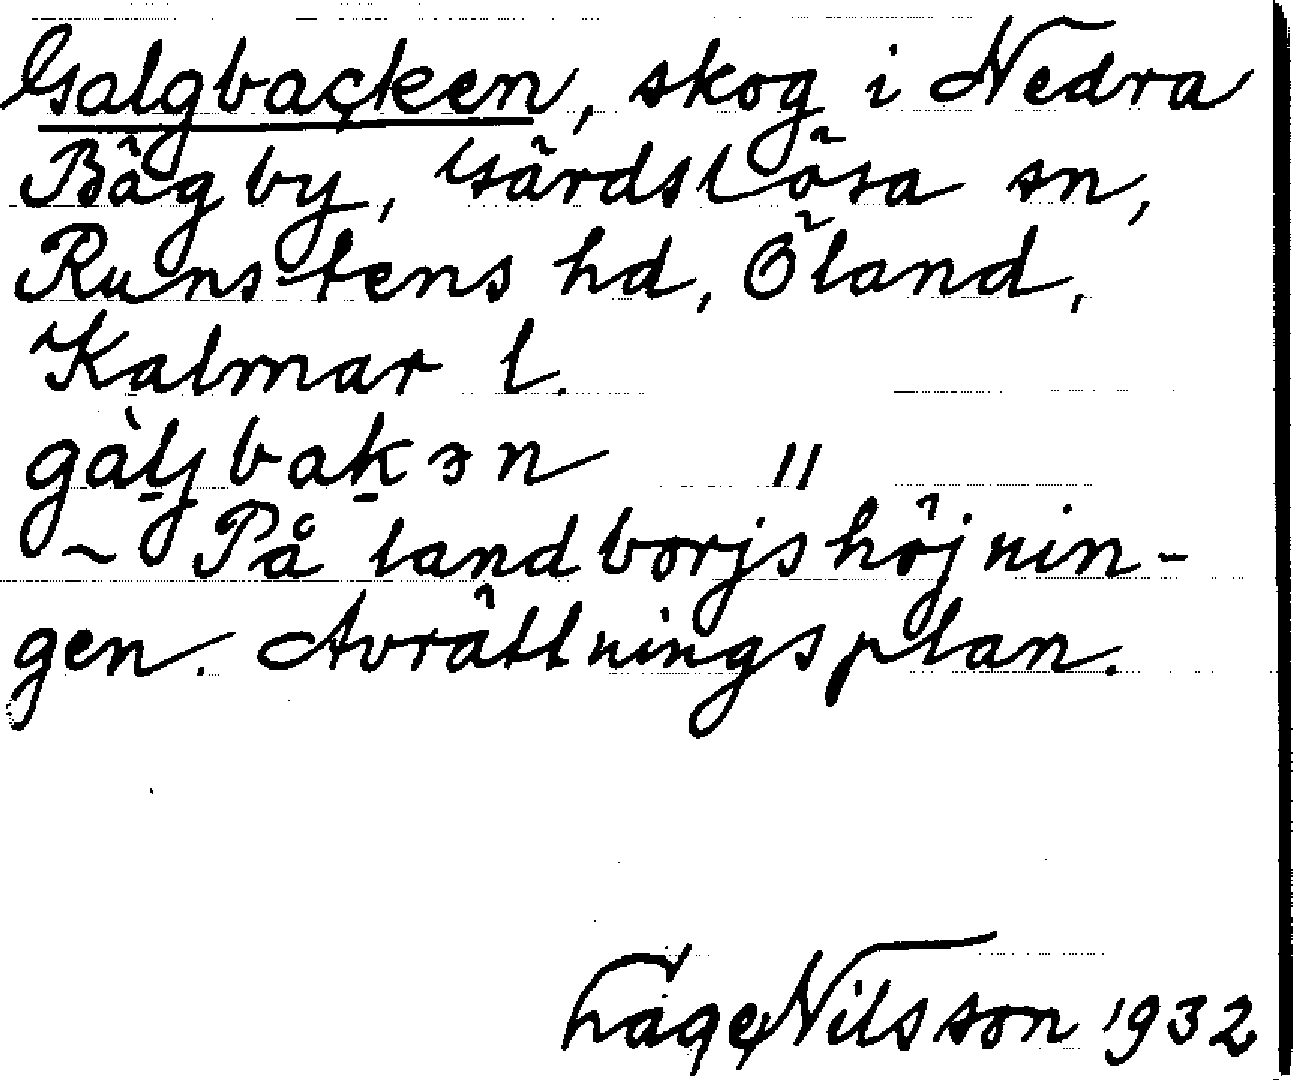 Galgbacken, skog i Nedra
Bägby, Gärdslösa sn,
Runstens hd, Öland,
Kalmar l.
gàljbakən //
~ På landborjshöjnin-
gen. Avrättningsplan.
Nilsson 1932